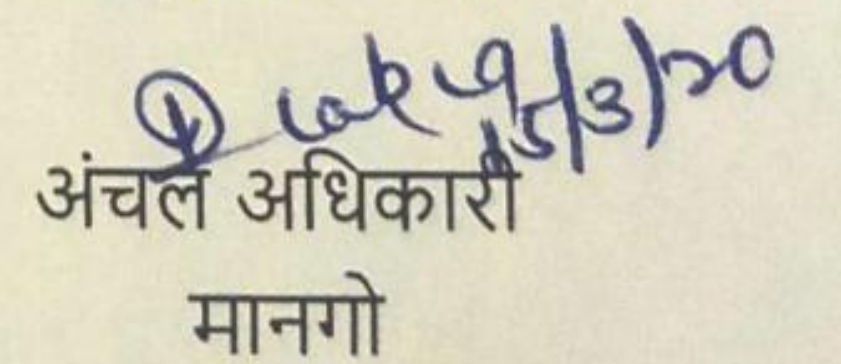 15/3/20
अंचल अधिकारी
मानगो